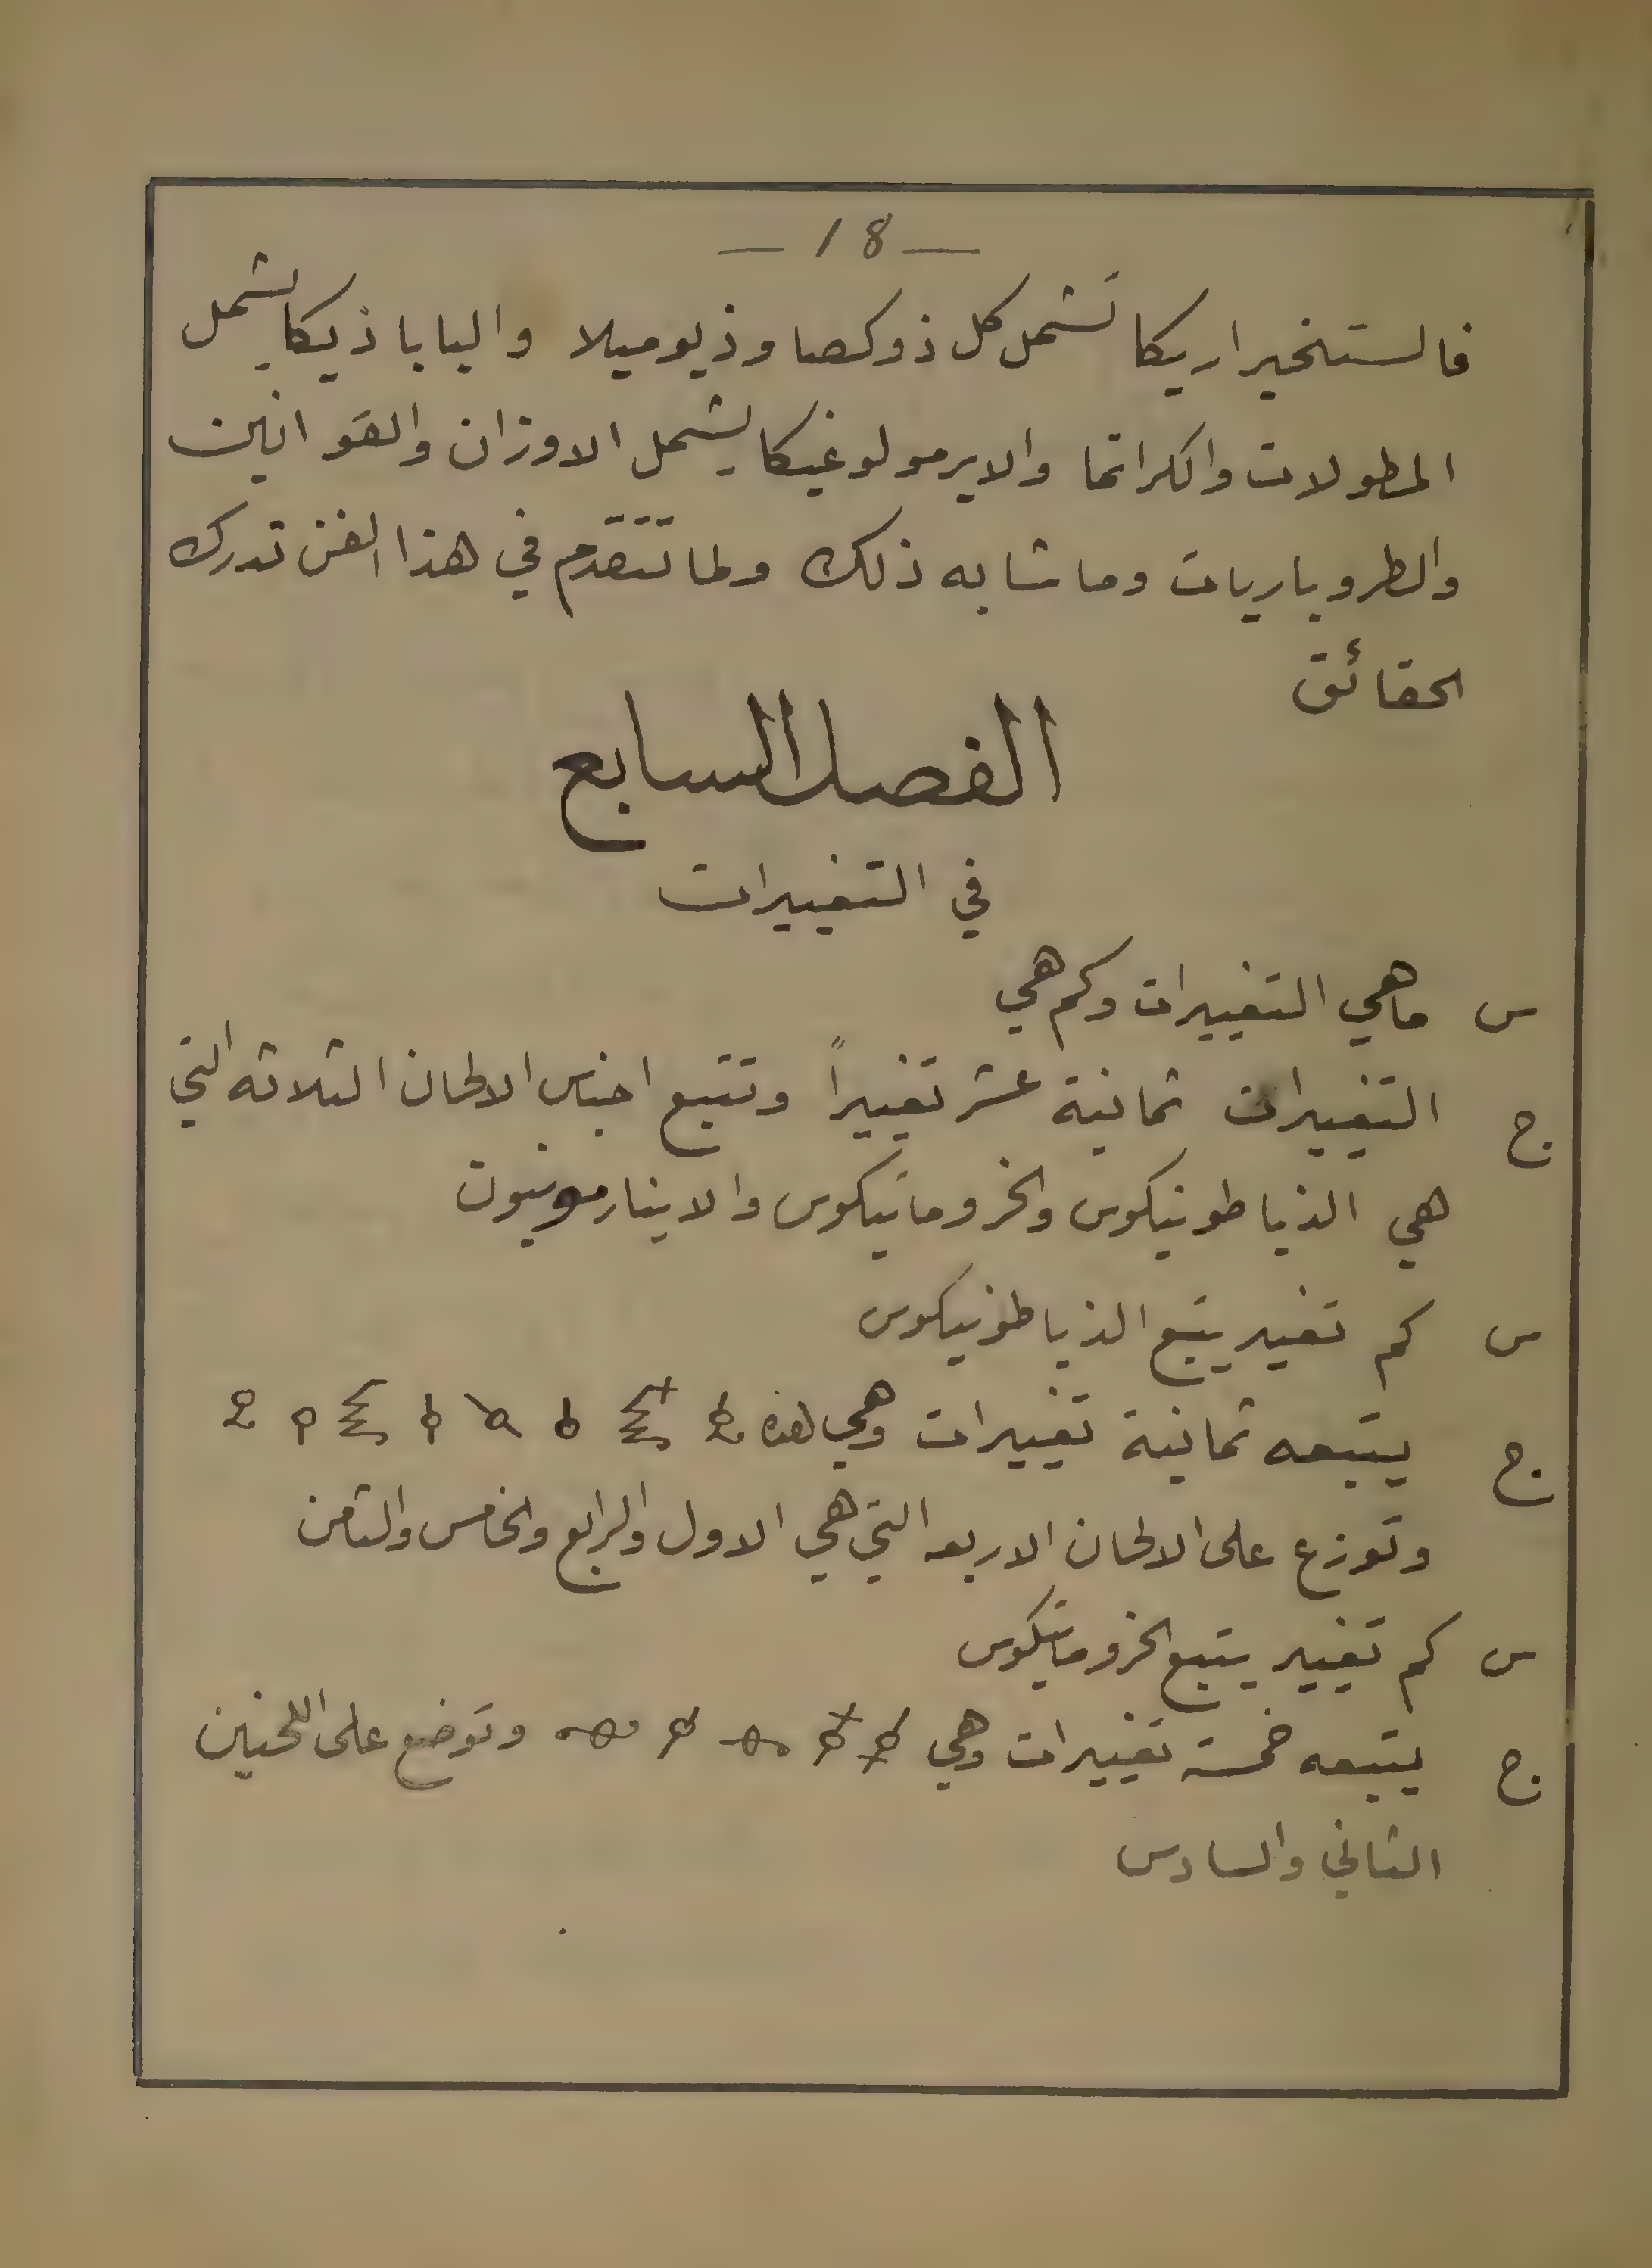 — 18 —
فالستخيراريكا تشمل كل ذوكصا وذيوميلا والباباذيكا يشمل
المطولات والكراتما والايرمولوغيكا يشمل الاوزان والقوانين
والطروباريات وما شابه ذلك ولما تتقدم في هذا الفن تدرك
الحقائق
الفصل السابع
في التغييرات
س ما هي التغييرات وكم هي
ج التغييرات ثمانية عشر تغييراً وتتبع اجناس الالحان الثلاثه التي
هي الذياطونيكوس والخروماتيكوس والاينارمونيون
س كم تغيير يتبع الذياطونيكوس
ج يتبعه ثمانية تغييرات وهي هذه
وتوزع على الالحان الاربعه التي هي الاول والرابع والخامس والثامن
س كم تغيير يتبع الخروماتيكوس
ج يتبعه خمسة تغييرات وهي وتوضع على اللحنين
الثاني والسادس